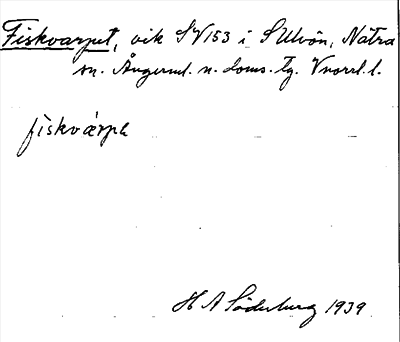 Fiskvarpet, vik SV153 i S Ulvön, Nätra
sn. Ångerml. n. doms. tg. Vnorrl. l.
fiskvárpe
H A Söderberg 1939